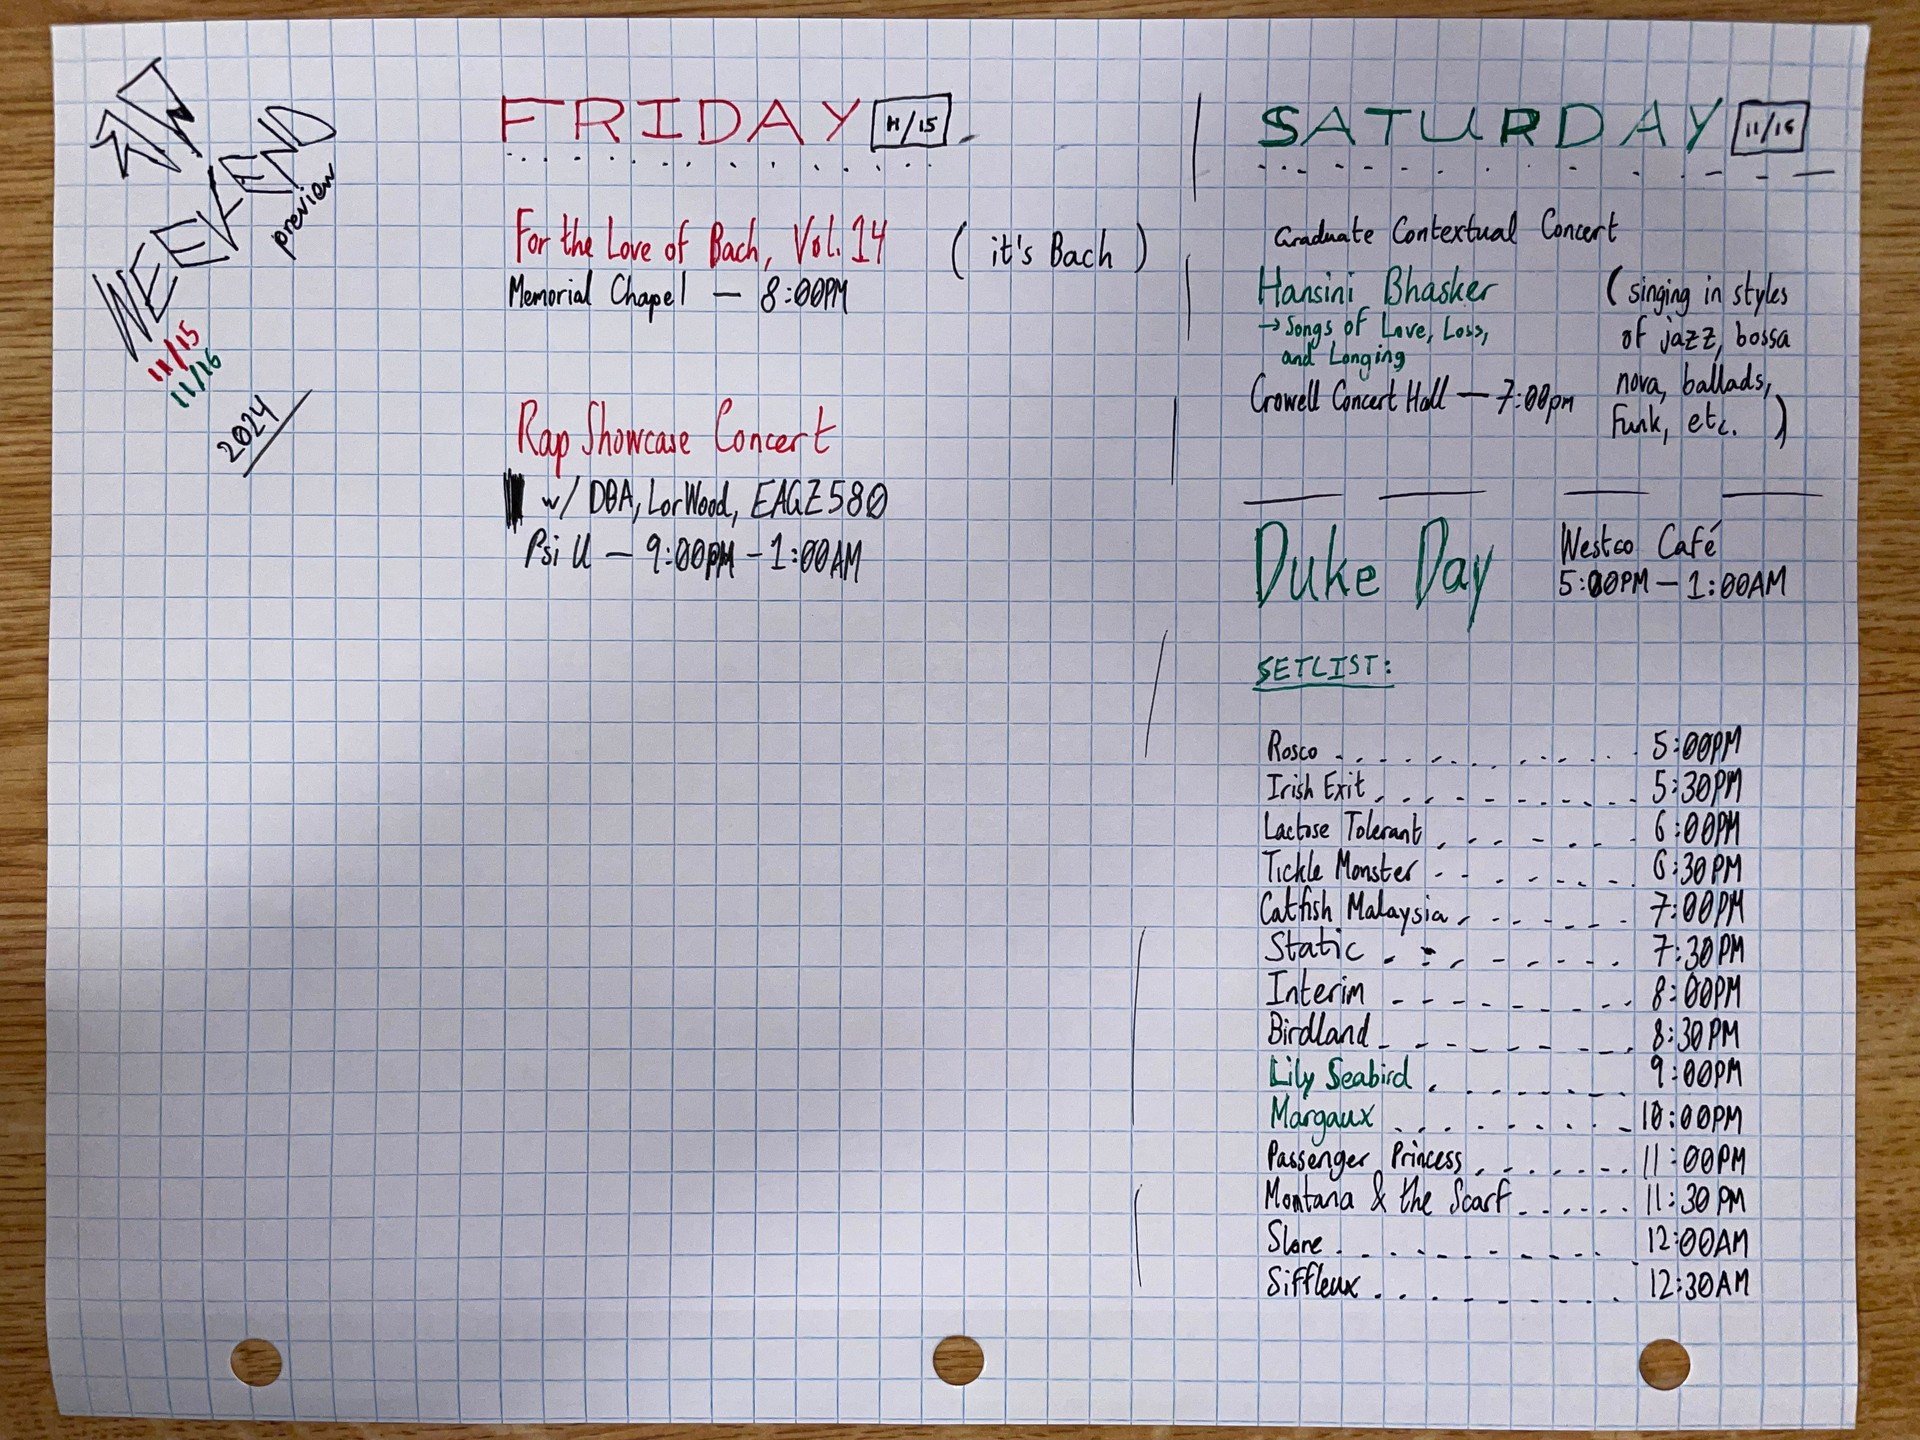 WEEKEND
preview
11/15
11/16
2024
FRIDAY 11/15
For the Love of Bach, Vol. 14 (it's Bach)
Memorial Chapel — 8:00PM
Rap Showcase Concert
w/ DBA, LorWood, EAGZ580
Psi U — 9:00PM - 1:00AM
SATURDAY 11/16
Graduate Contextual Concert
Hansini Bhasker
→ Songs of Love, Loss,
and Longing
Crowell Concert Hall — 7:00pm
(singing in styles
of jazz, bossa
nova, ballads,
Funk, etc.)
Duke Day
Westco Café
5:00PM — 1:00AM
SETLIST:
Rosco 5:00PM
Irish Exit 5:30PM
Lactose Tolerant 6:00PM
Tickle Monster 6:30PM
Catfish Malaysia 7:00PM
Static 7:30PM
Interim 8:00PM
Birdland 8:30PM
Lily Seabird 9:00PM
Margaux 10:00PM
Passenger Princess 11:00PM
Montana & the Scarf 11:30PM
Slone 12:00AM
Siffleux 12:30AM